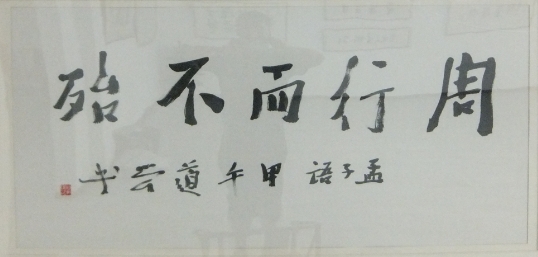 周行而不殆
孟子語 甲午 道云书